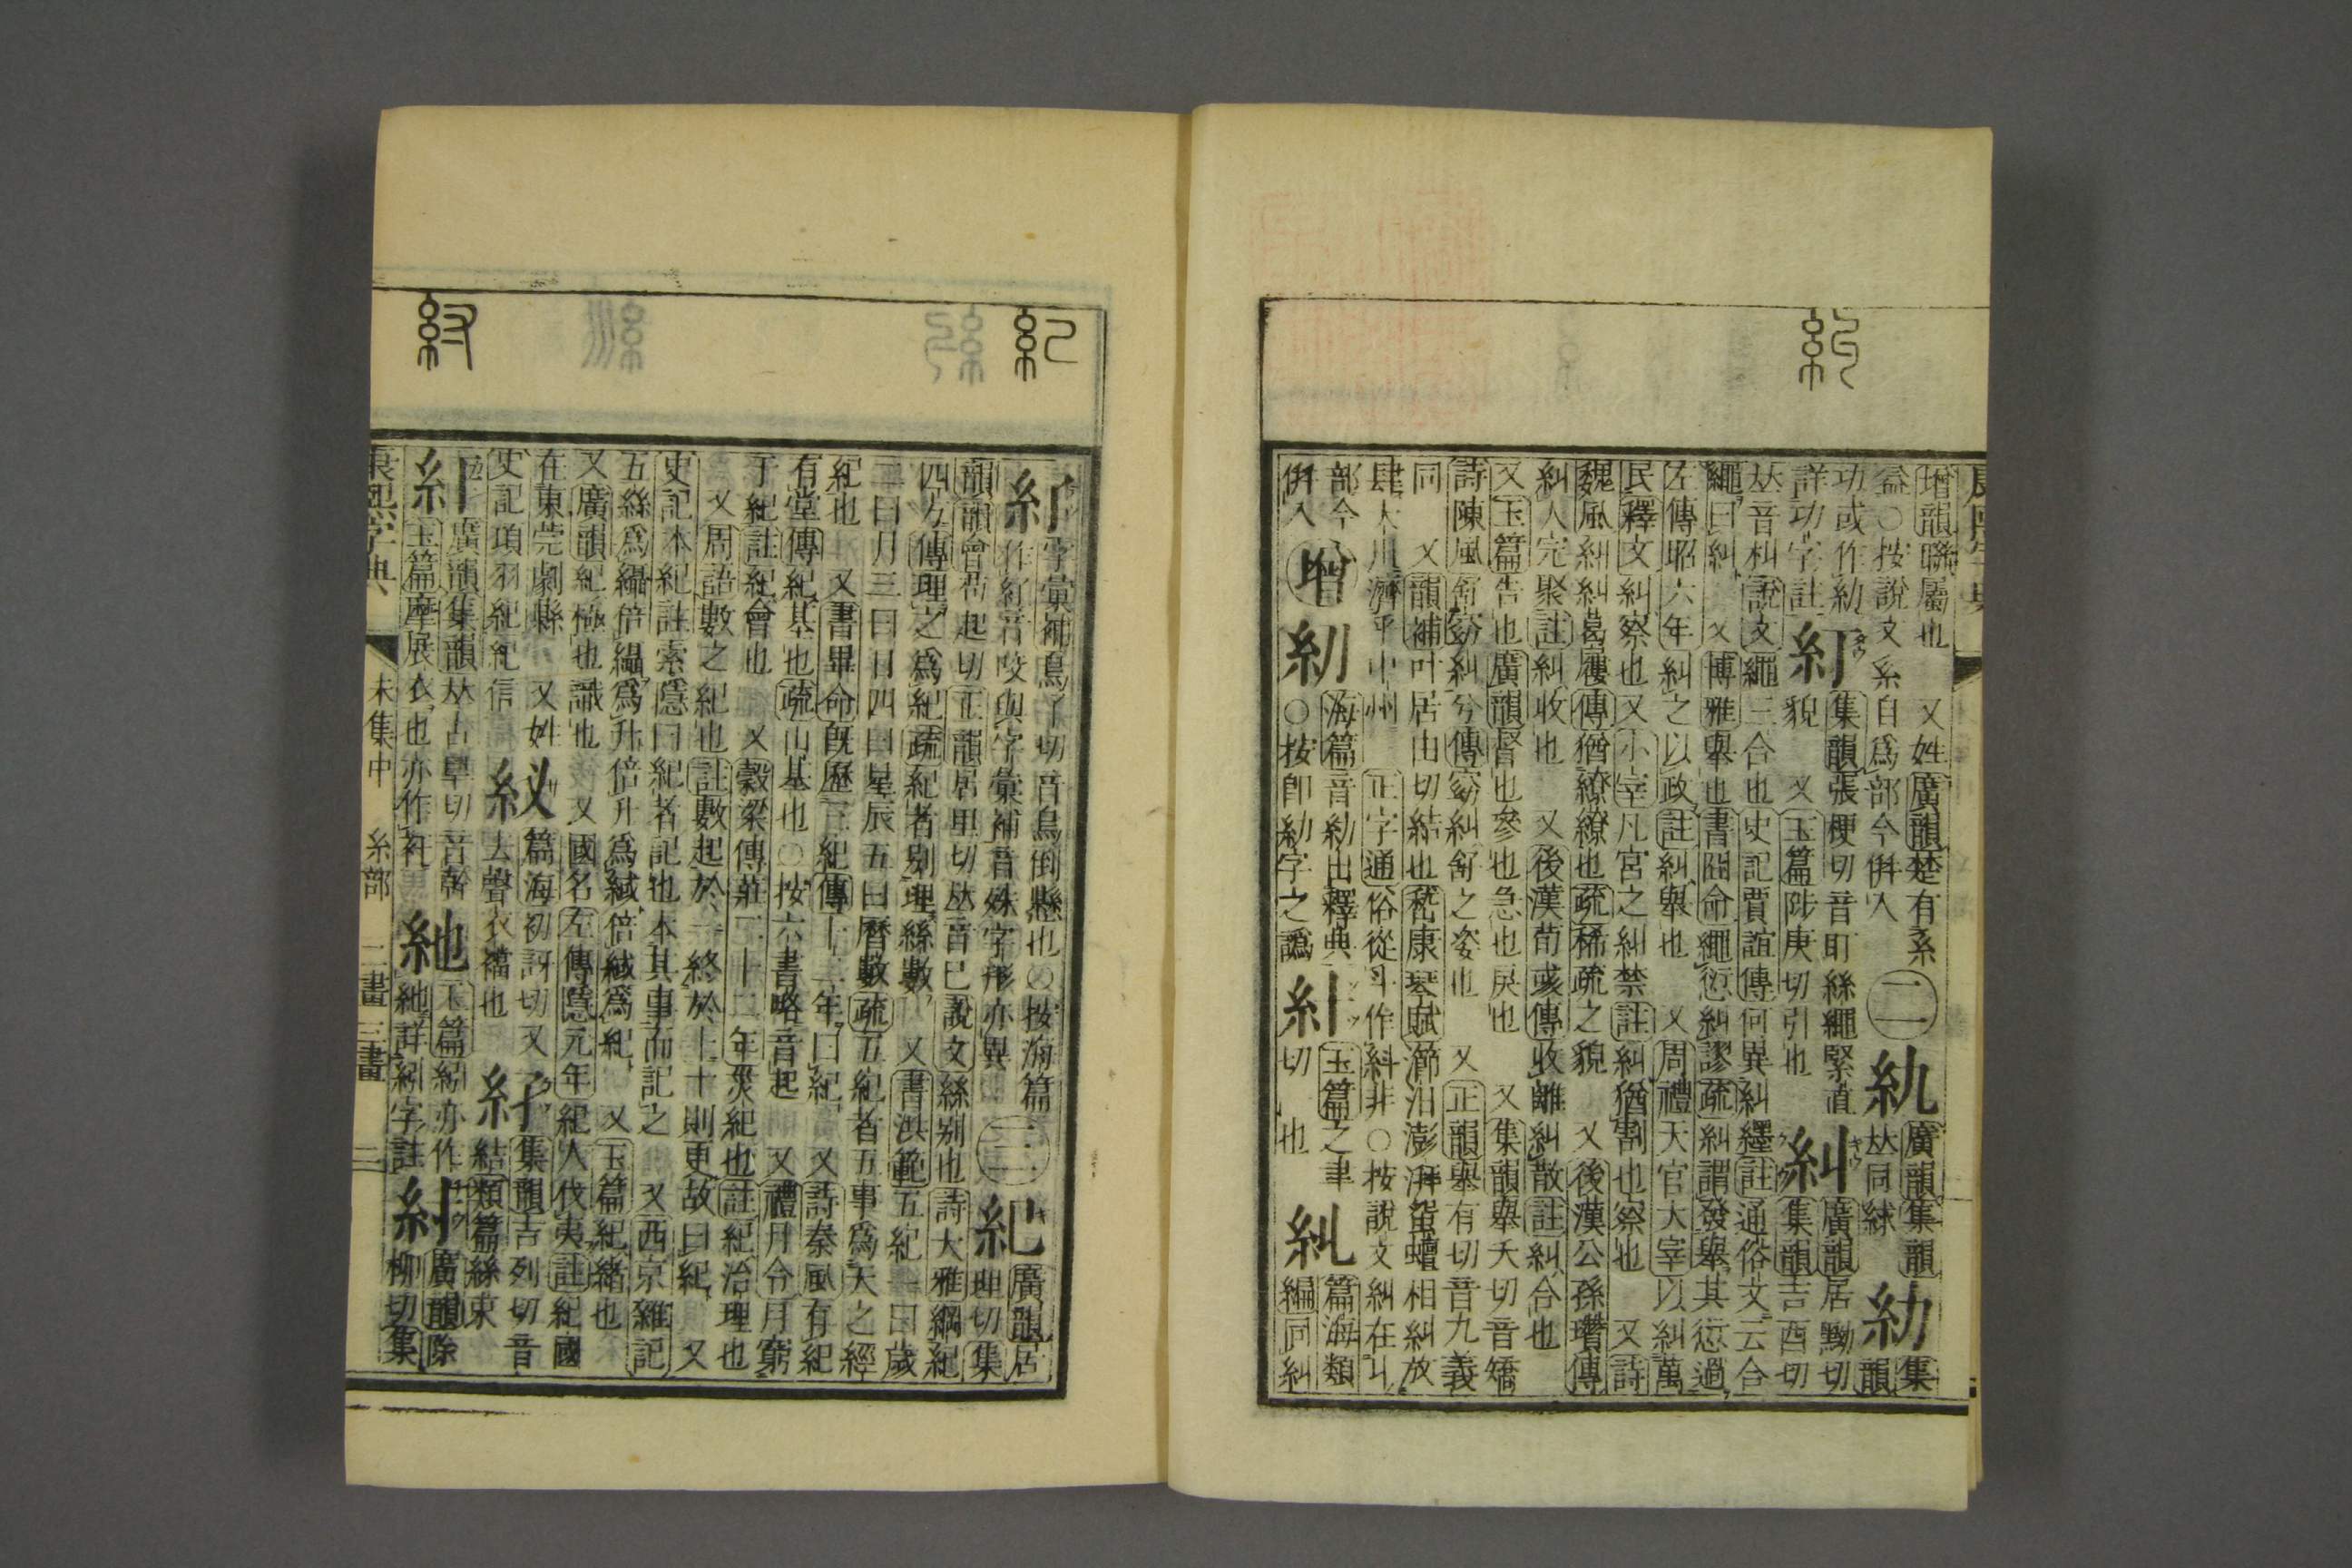 糾
康熙字典
增韻聯屬也 又姓廣韻楚有系
益○按說文系自爲部今倂入
㊁
廣韻集韻
𠀤同絿
糼
集
韻
功或作糼
詳功字註
糽
集韻張梗切音盯絲繩緊直
貌 又玉篇陟庚切引也
糾
廣韻居黝切
集韻吉酉切
𠀤音朻說文繩三合也史記賈誼傳何異糾纆註通俗文云合
繩曰糾 又博雅舉也書冏命繩愆糾謬疏糾謂發舉其愆過
左傳昭六年糾之以政註糾舉也 又周禮天官大宰以糾萬
民釋文糾察也又小宰凡宮之糾禁註糾猶割也察也 又詩
魏風糾糾葛屨傳猶繚繚也疏稀疏之貌 又後漢公孫瓚傳
糾人完聚註糾收也 又後漢荀彧傳收離糾散註糾合也
又玉篇告也廣韻督也參也急也戾也 又集韻舉夭切音矯
詩陳風舒窈糾兮傳窈糾舒之姿也 又正韻舉有切音九義
同 又韻補叶居由切結也嵇康琴賦瀄汨澎湃蜿蟺相糾放
肆大川濟乎中州 正字通俗從斗作紏非○按說文糾在丩
部今
倂入
增
海篇音糼出釋典
○按卽糼字之譌
玉篇之聿
切 也
糺
篇海類
編同糾
紀
字彙補鳥了切音鳥倒懸也○按海篇
作糽音咬與字彙補音殊字形亦異
㊂
紀
廣韻居
理切集
韻韻會苟起切正韻居里切𠀤音己說文絲別也詩大雅綱紀
四方傳理之爲紀疏紀者別理絲數 又書洪範五紀一曰歲
二曰月三曰日四曰星辰五曰曆數疏五紀者五事爲天之經
紀也 又書畢命旣歷三紀傳十二年曰紀 又詩秦風有紀
有堂傳紀基也疏山基也○按六書略音起 又禮月令月窮
于紀註紀會也 又穀梁傳莊二十二年災紀也註紀治理也
又周語數之紀也註數起於一終於十十則更故曰紀 又
史記本紀註索隱曰紀者記也本其事而記之 又西京雜記
五絲爲䌰倍䌰爲升倍升爲緎倍緎爲紀 又玉篇紀緒也
又廣韻紀極也識也 又國名左傳隱元年紀人伐夷註紀國
在東莞劇縣 又姓
史記項羽紀紀信
篇海初訝切又
去聲衣襠也
集韻吉列切音
結類篇絲束
廣韻集韻𠀤古旱切音幹
玉篇摩展衣也亦作衦
紂
玉篇亦作
紽詳字註
紂
廣韻除
柳切集
康熙字典 未集中 糸部 二畫三畫 三